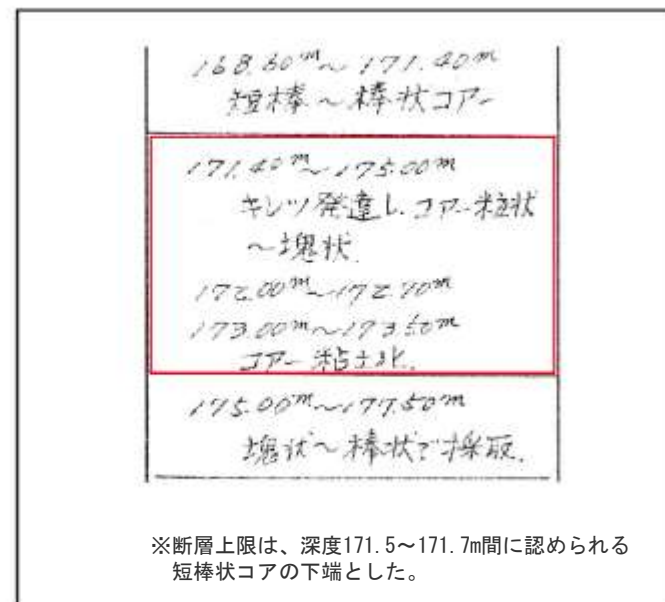 168.60m～171.40m
短棒～棒状コアー
171.40m～175.00m
キレツ発達し.コアー粒状
～塊状.
172.00m～172.70m
173.00m～173.50m
コアー粘土化.
175.00m～177.50m
塊状～棒状で採取.
※断層上限は、深度171.5～171.7m間に認められる
短棒状コアの下端とした。